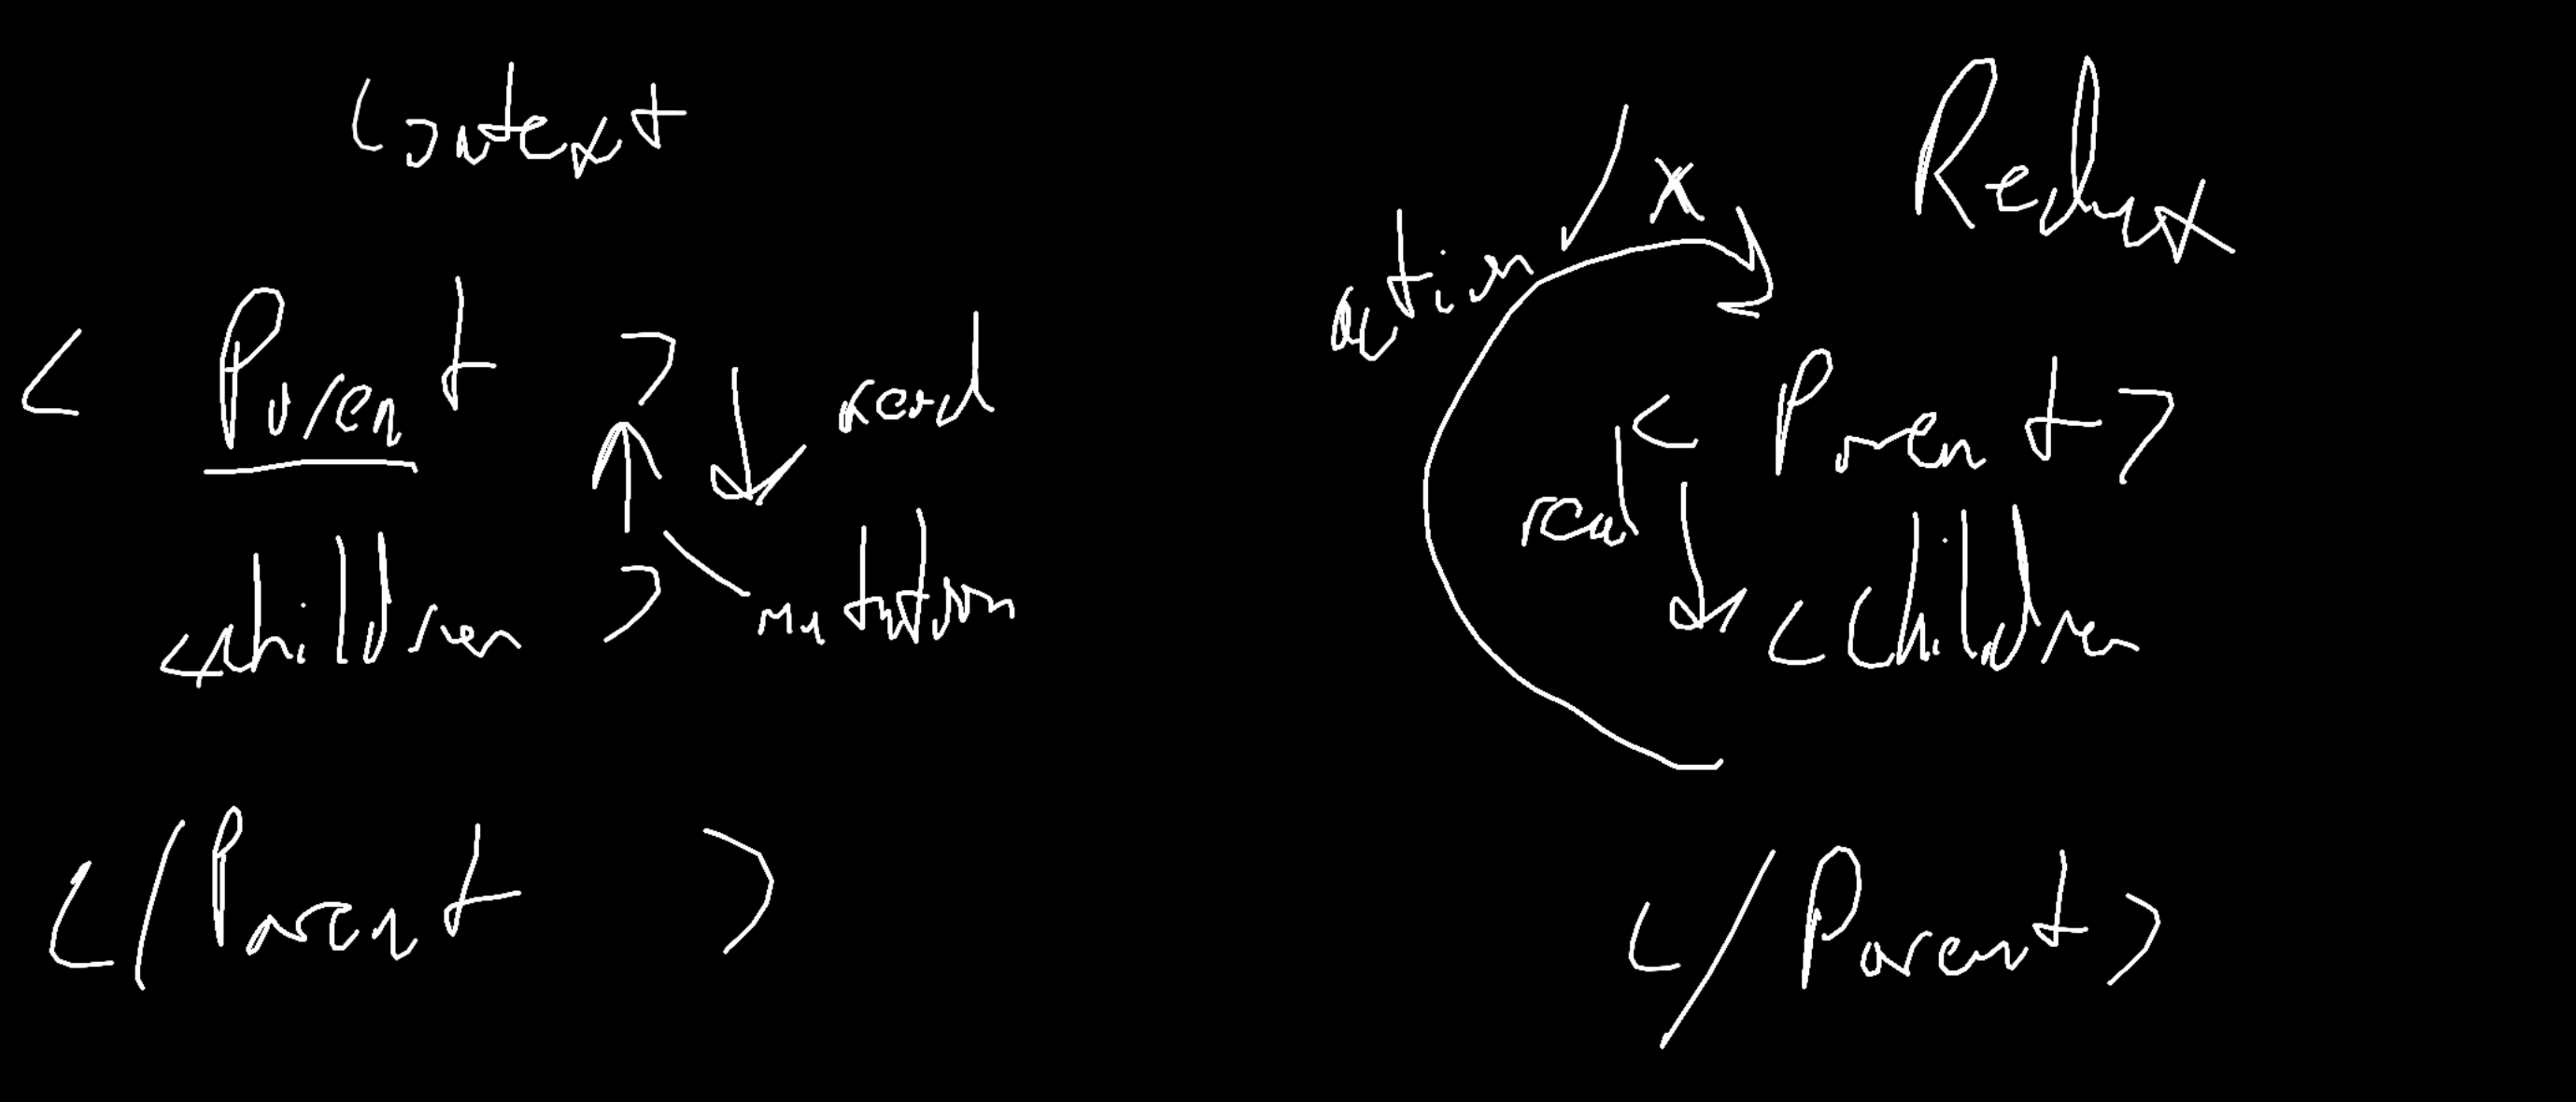 Context
< Parent >
read
<children >
mutation
</Parent >
Redux
X
action
< Parent >
read
<Children
</Parent>